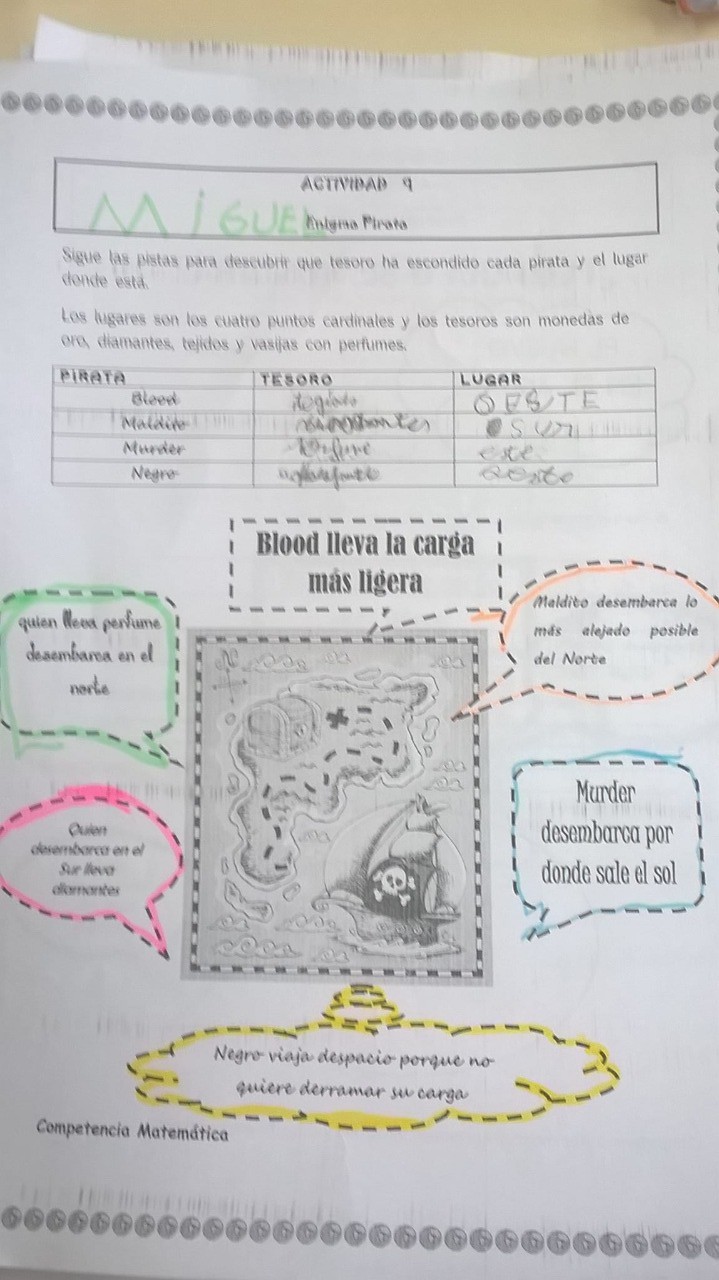 ACTIVIDAD 9
MiGUEL
Enigma Pirata
Sigue las pistas para descubrir que tesoro ha escondido cada pirata y el lugar
donde está.
Los lugares son los cuatro puntos cardinales y los tesoros son monedas de
oro, diamantes, tejidos y vasijas con perfumes.
PIRATA TESORO LUGAR
Blood OESTE
Maldito SUR
Murder este
Negro
Blood lleva la carga
más ligera
quien lleva perfume
desembarca en el
norte
Maldito desembarca lo
más alejado posible
del Norte
Quien
desembarca en el
Sur lleva
diamantes
Murder
desembarca por
donde sale el sol
Negro viaja despacio porque no
quiere derramar su carga
Competencia Matemática